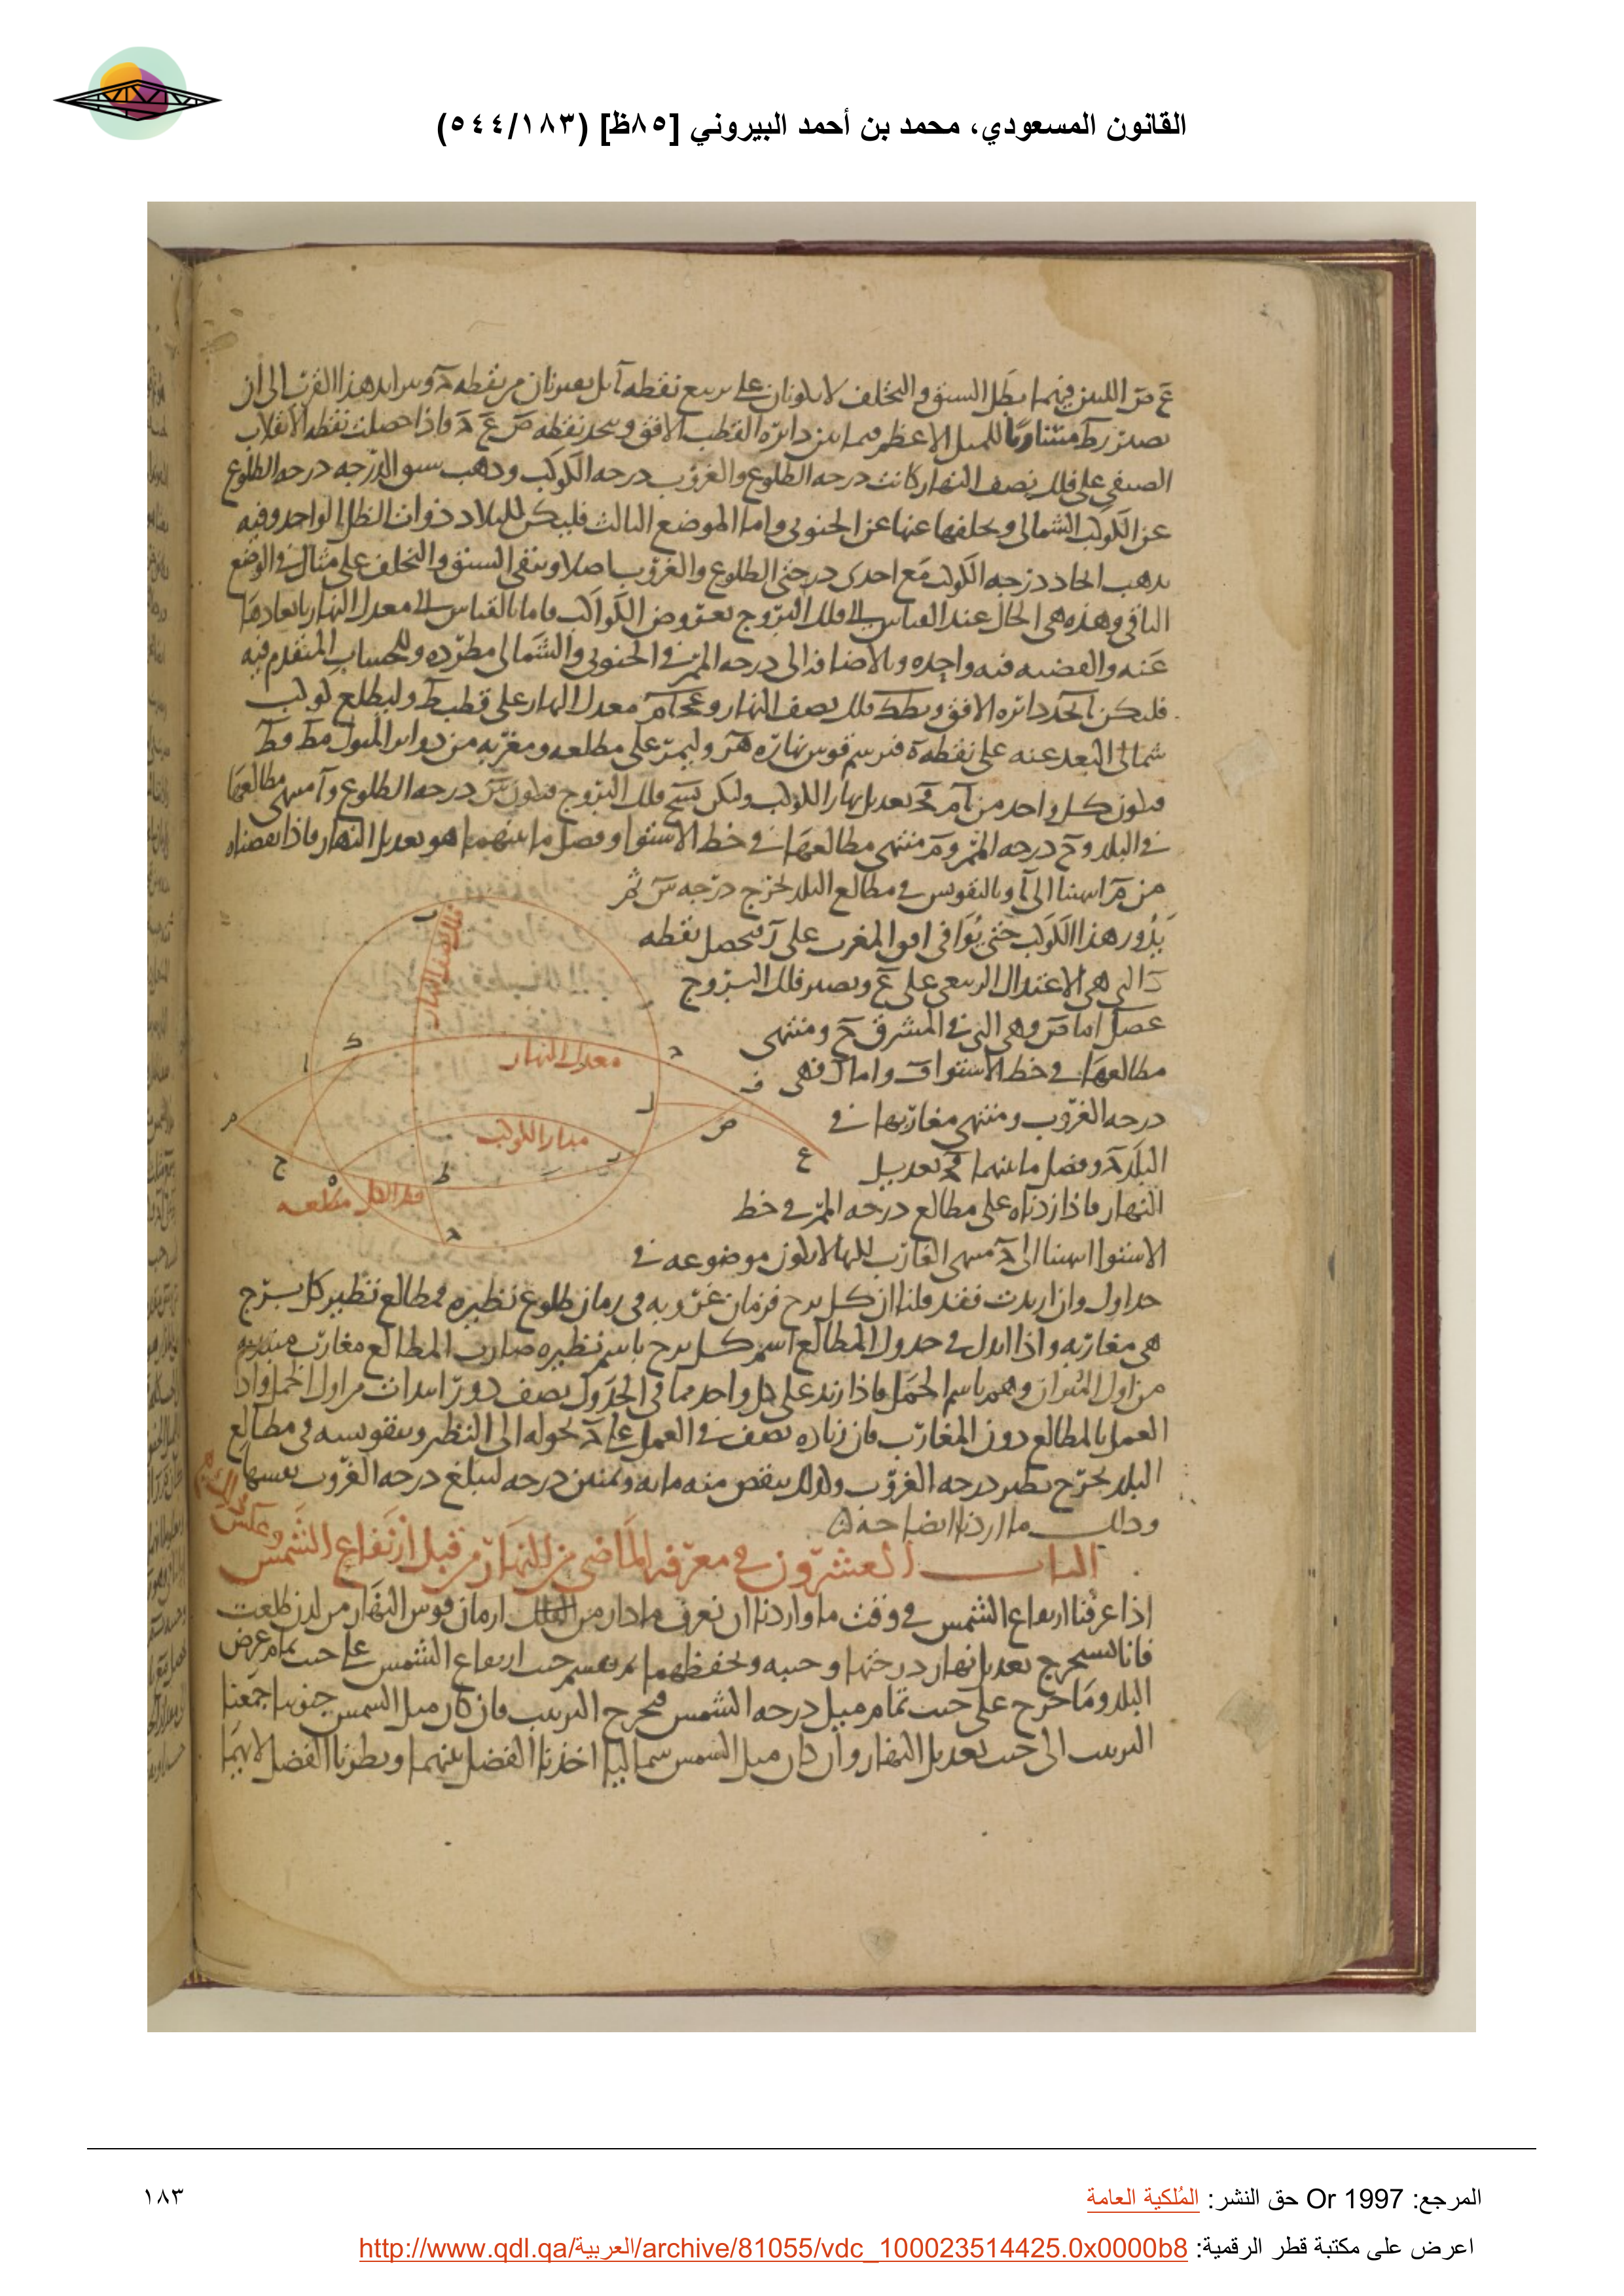 القانون المسعودي، محمد بن أحمد البيروني [٨٥ظ] (٥٤٤/١٨٣)
ع ص اللتين فيهما يبطل السبق والتخلف لا يكونان على تربيع نقطة آ بل يقتربان من نقطة د ويتزايد هذا القرب الى ان
يصير ر ط متساويا للميل الاعظم فيماس دائرة القطب الافق ويتحد نقطة ص ع د فاذا حصلت نقطة الانقلاب
الصيفي على فلك نصف النهار كانت درجة الطلوع والغروب درجة الكوكب وذهب سبق الدرجة درجة الطلوع
عن الكوكب الشمالي وتخلفها عنها عن الجنوبي واما الموضع الثالث فليكن للبلاد ذوات الظل الواحد وفيه
يذهب اتحاد درجة الكوكب مع احدى درجتي الطلوع والغروب اصلا ويبقى السبق والتخلف على مثال في الوضع
الباقي وهذه هي الحال عند القياس الى فلك البروج بعروض الكواكب فاما بالقياس الى معدل النهار بابعادها
عنه والقضية فيه واحدة وبالاضافة الى درجة الممر في الجنوبي والشمالي مطردة وللحساب المتقدم فيه
فليكن آبجد دائرة الافق و ب ط د فلك نصف النهار و ع ج ا م معدل النهار على قطب ط وليطلع كوكب
شمالي البعد عنه على نقطة ه فنرسم قوس نهاره ه ر وليمر على مطلعه ومغربه من دوائر الميول م ط ف ط
فيكون كل واحد من آم ف ج تعديل نهار الكوكب وليكن س ح فلك البروج فيكون س درجة الطلوع وآ منتهى مطالعها
في البلد و ح درجة الممر و م منتهى مطالعها في خط الاستوا وفضل ما بينهما هو تعديل النهار فاذا نقصناه
من م انتهينا الى آ وبالتقويس في مطالع البلد تخرج درجة س ثم
يدور هذا الكوكب حتى يوافي افق المغرب على ر فتحصل نقطة
ك التي هي الاعتدال الربيعي على ع ويصير فلك البروج
ع ص ل اما ص وهي التي في المشرق ح ومنتهى
مطالعها في خط الاستوا ف واما ل فهي
درجة الغروب ومنتهى مغاربها في
البلد ج وفضل ما بينهما ف ج تعديل
النهار فاذا زدناه على مطالع درجة الممر في خط
الاستوا انتهينا الى ج منتهى المغارب لكنها لا تكون موضوعة في
جداول وان اريدت فقد قلنا ان كل برج فزمان غروبه في زمان طلوع نظيره فمطالع نظير كل برج
هي مغاربه واذا ابدل في جدول المطالع اسم كل برج باسم نظيره صارت المطالع مغارب مبتدئة
من اول الميزان وهو باسم الحمل فاذا زيد على كل واحد مما في الجدول نصف دور ابتدأت من اول الحمل واذا
العمل بالمطالع دون المغارب فان زيادة نصف في العمل على ج تحوله الى النظير وبتقويسه في مطالع
البلد يخرج نظير درجة الغروب ولذلك ينقص منه مائة وثمنين درجة ليبلغ درجة الغروب نفسها
وذلك ما اردنا ايضاحه
الباب العشرون في معرفة الماضي من النهار من قبل ارتفاع الشمس وعكس
اذا عرفنا ارتفاع الشمس في وقت ما واردنا ان نعرف ما دار من الفلك ازمان قوس النهار من لدن طلعت
فانا نستخرج تعديل نهار درجتها وجيبه ونحفظهما ثم نقسم جيب ارتفاع الشمس على جيب تمام عرض
البلد وما خرج على جيب تمام ميل درجة الشمس فيخرج الترتيب فان كان ميل الشمس جنوبيا جمعنا
الترتيب الى جيب تعديل النهار وان كان ميل الشمس شماليا اخذنا الفضل بينهما ونظرنا الفضل لايهما
فلك نصف النهار
معدل النهار
مدار الكوكب
المرجع: Or 1997 حق النشر: المُلكية العامة
١٨٣
اعرض على مكتبة قطر الرقمية: http://www.qdl.qa/العربية/archive/81055/vdc_100023514425.0x0000b8